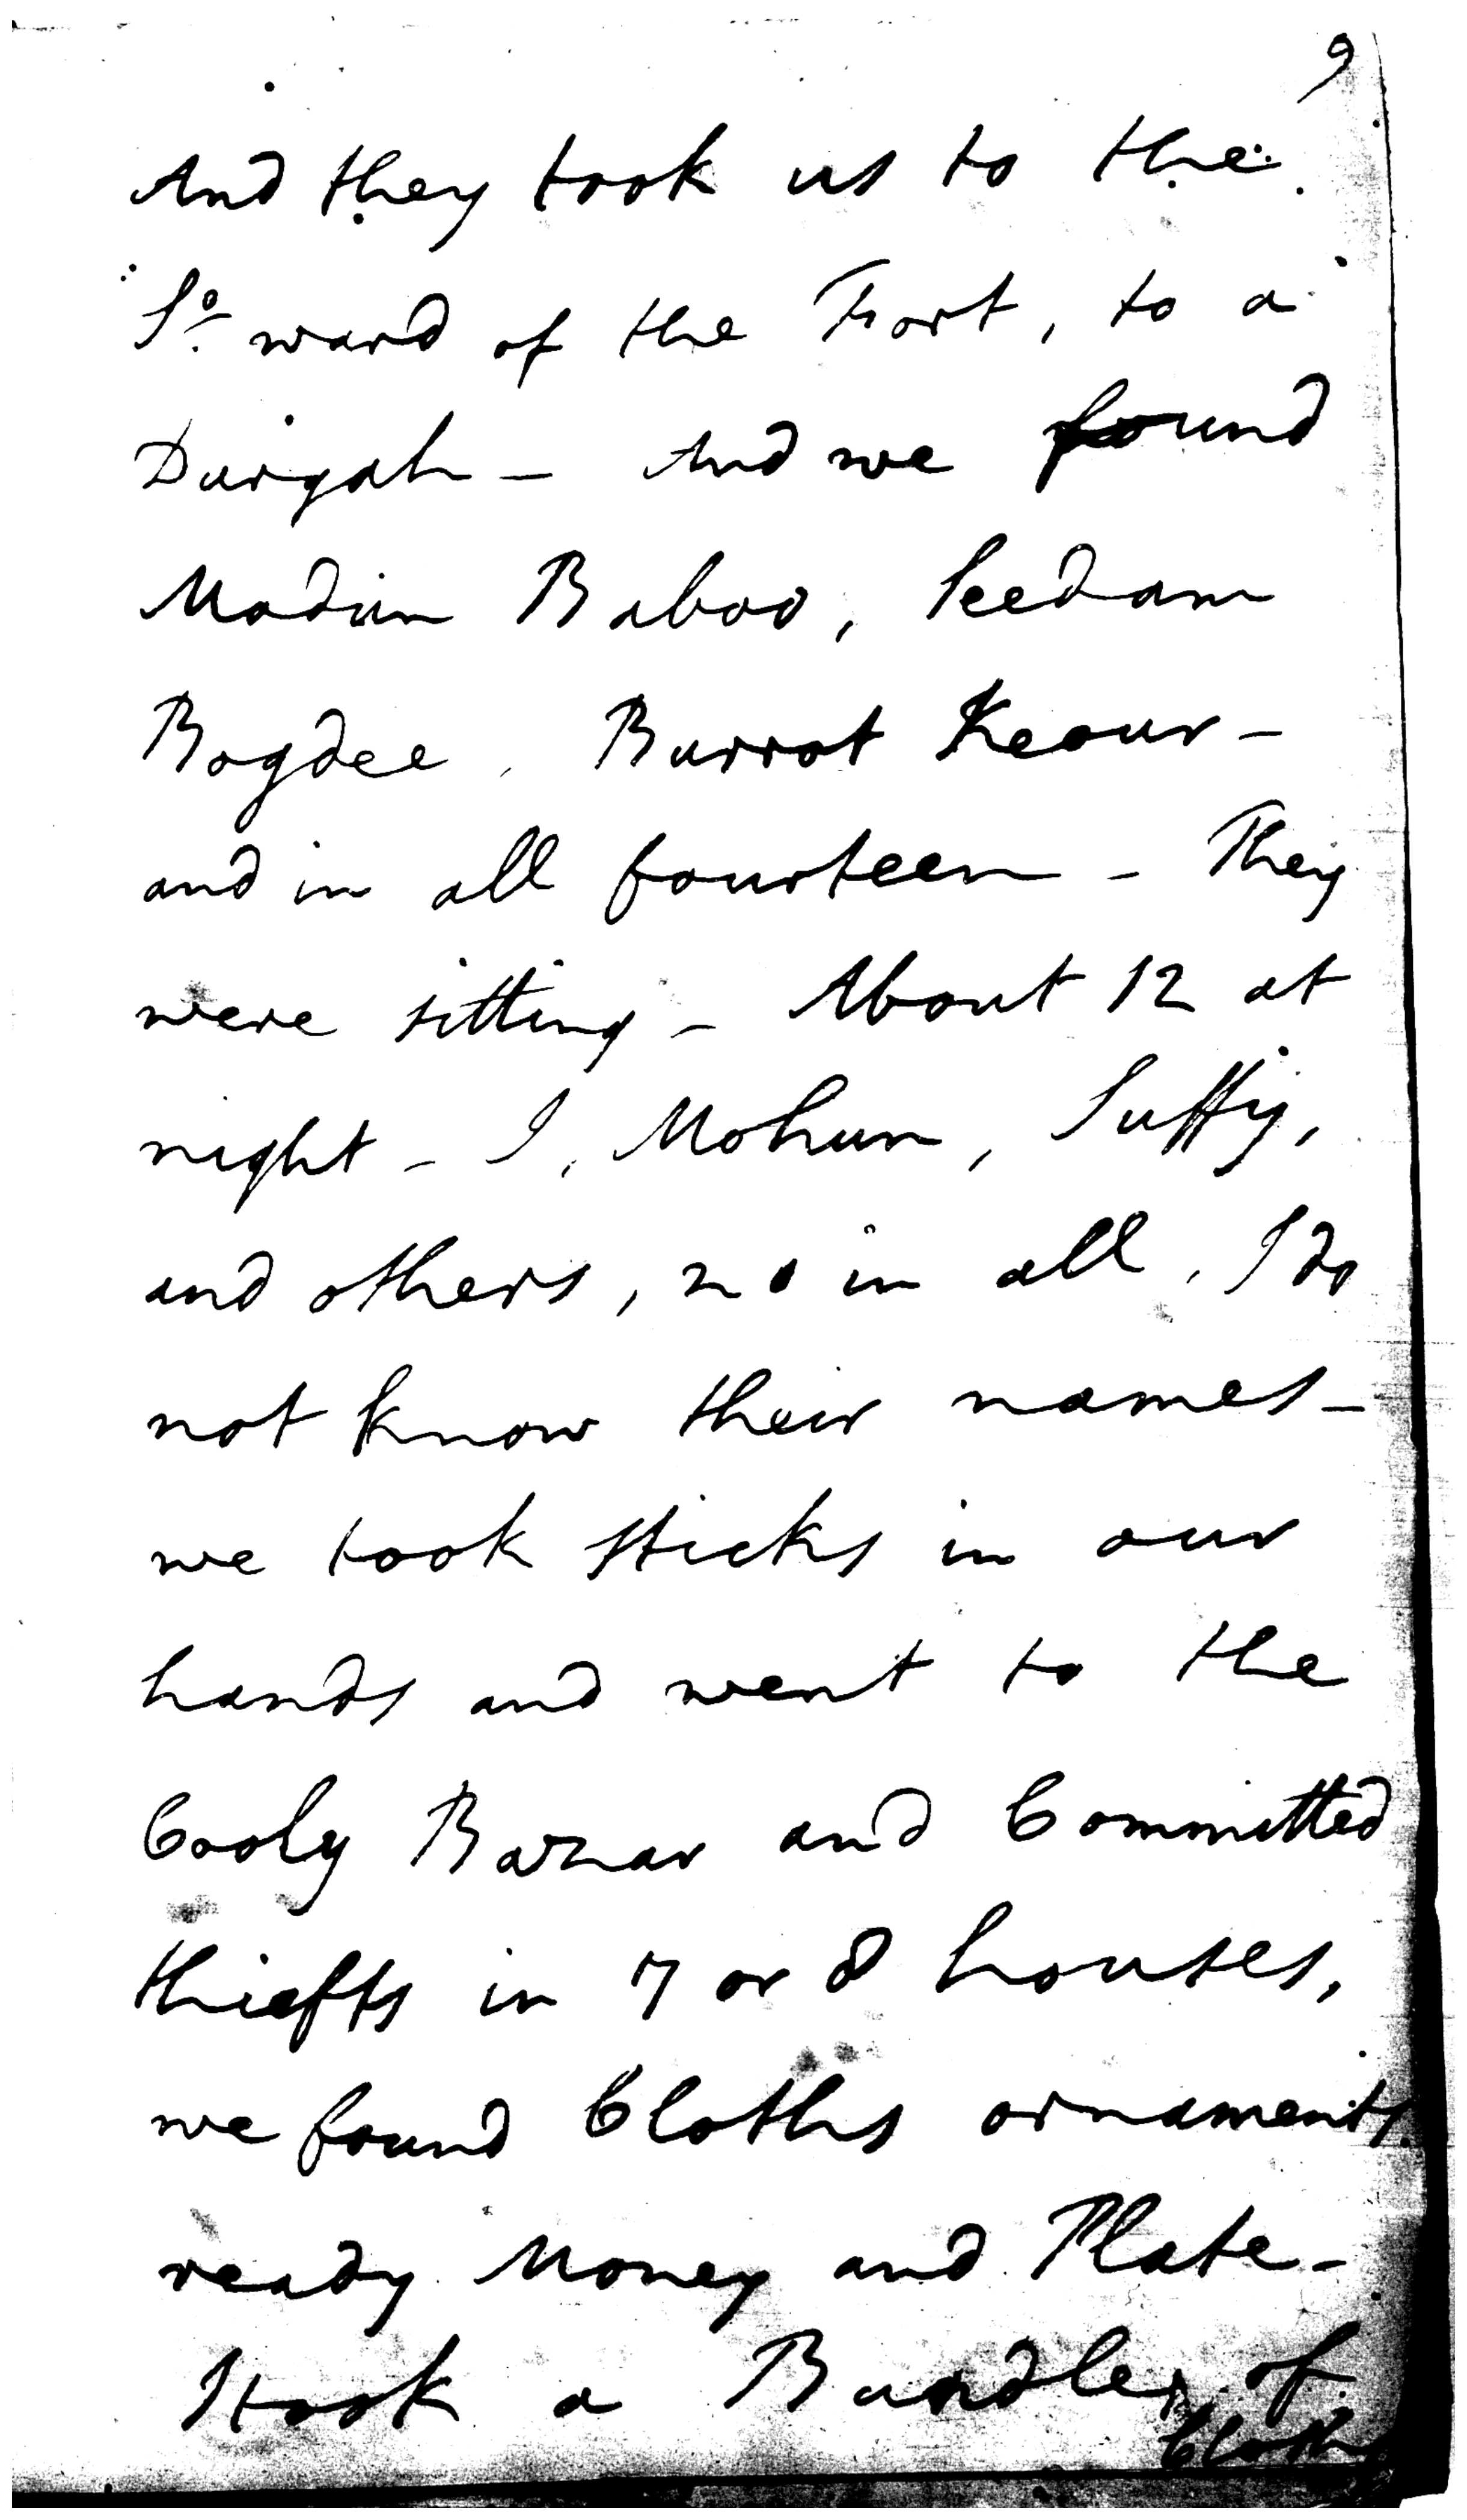 9
And they took us to the
So. ward of the Fort, to a
Durgah - And we found
Modun Baboo, Seedam
Bogdee, Burrot Keour -
and in all fourteen - They
were sitting - About 12 at
night - I, Mohun, Suffy,
and others, 20 in all, I do
not know their names -
we took sticks in our
hands and went to the
Cooly Bazar and Committed
thiefts in 7 or 8 houses,
we found Cloths ornaments
ready Money and Plate -
I took a Bundle of
Cloths